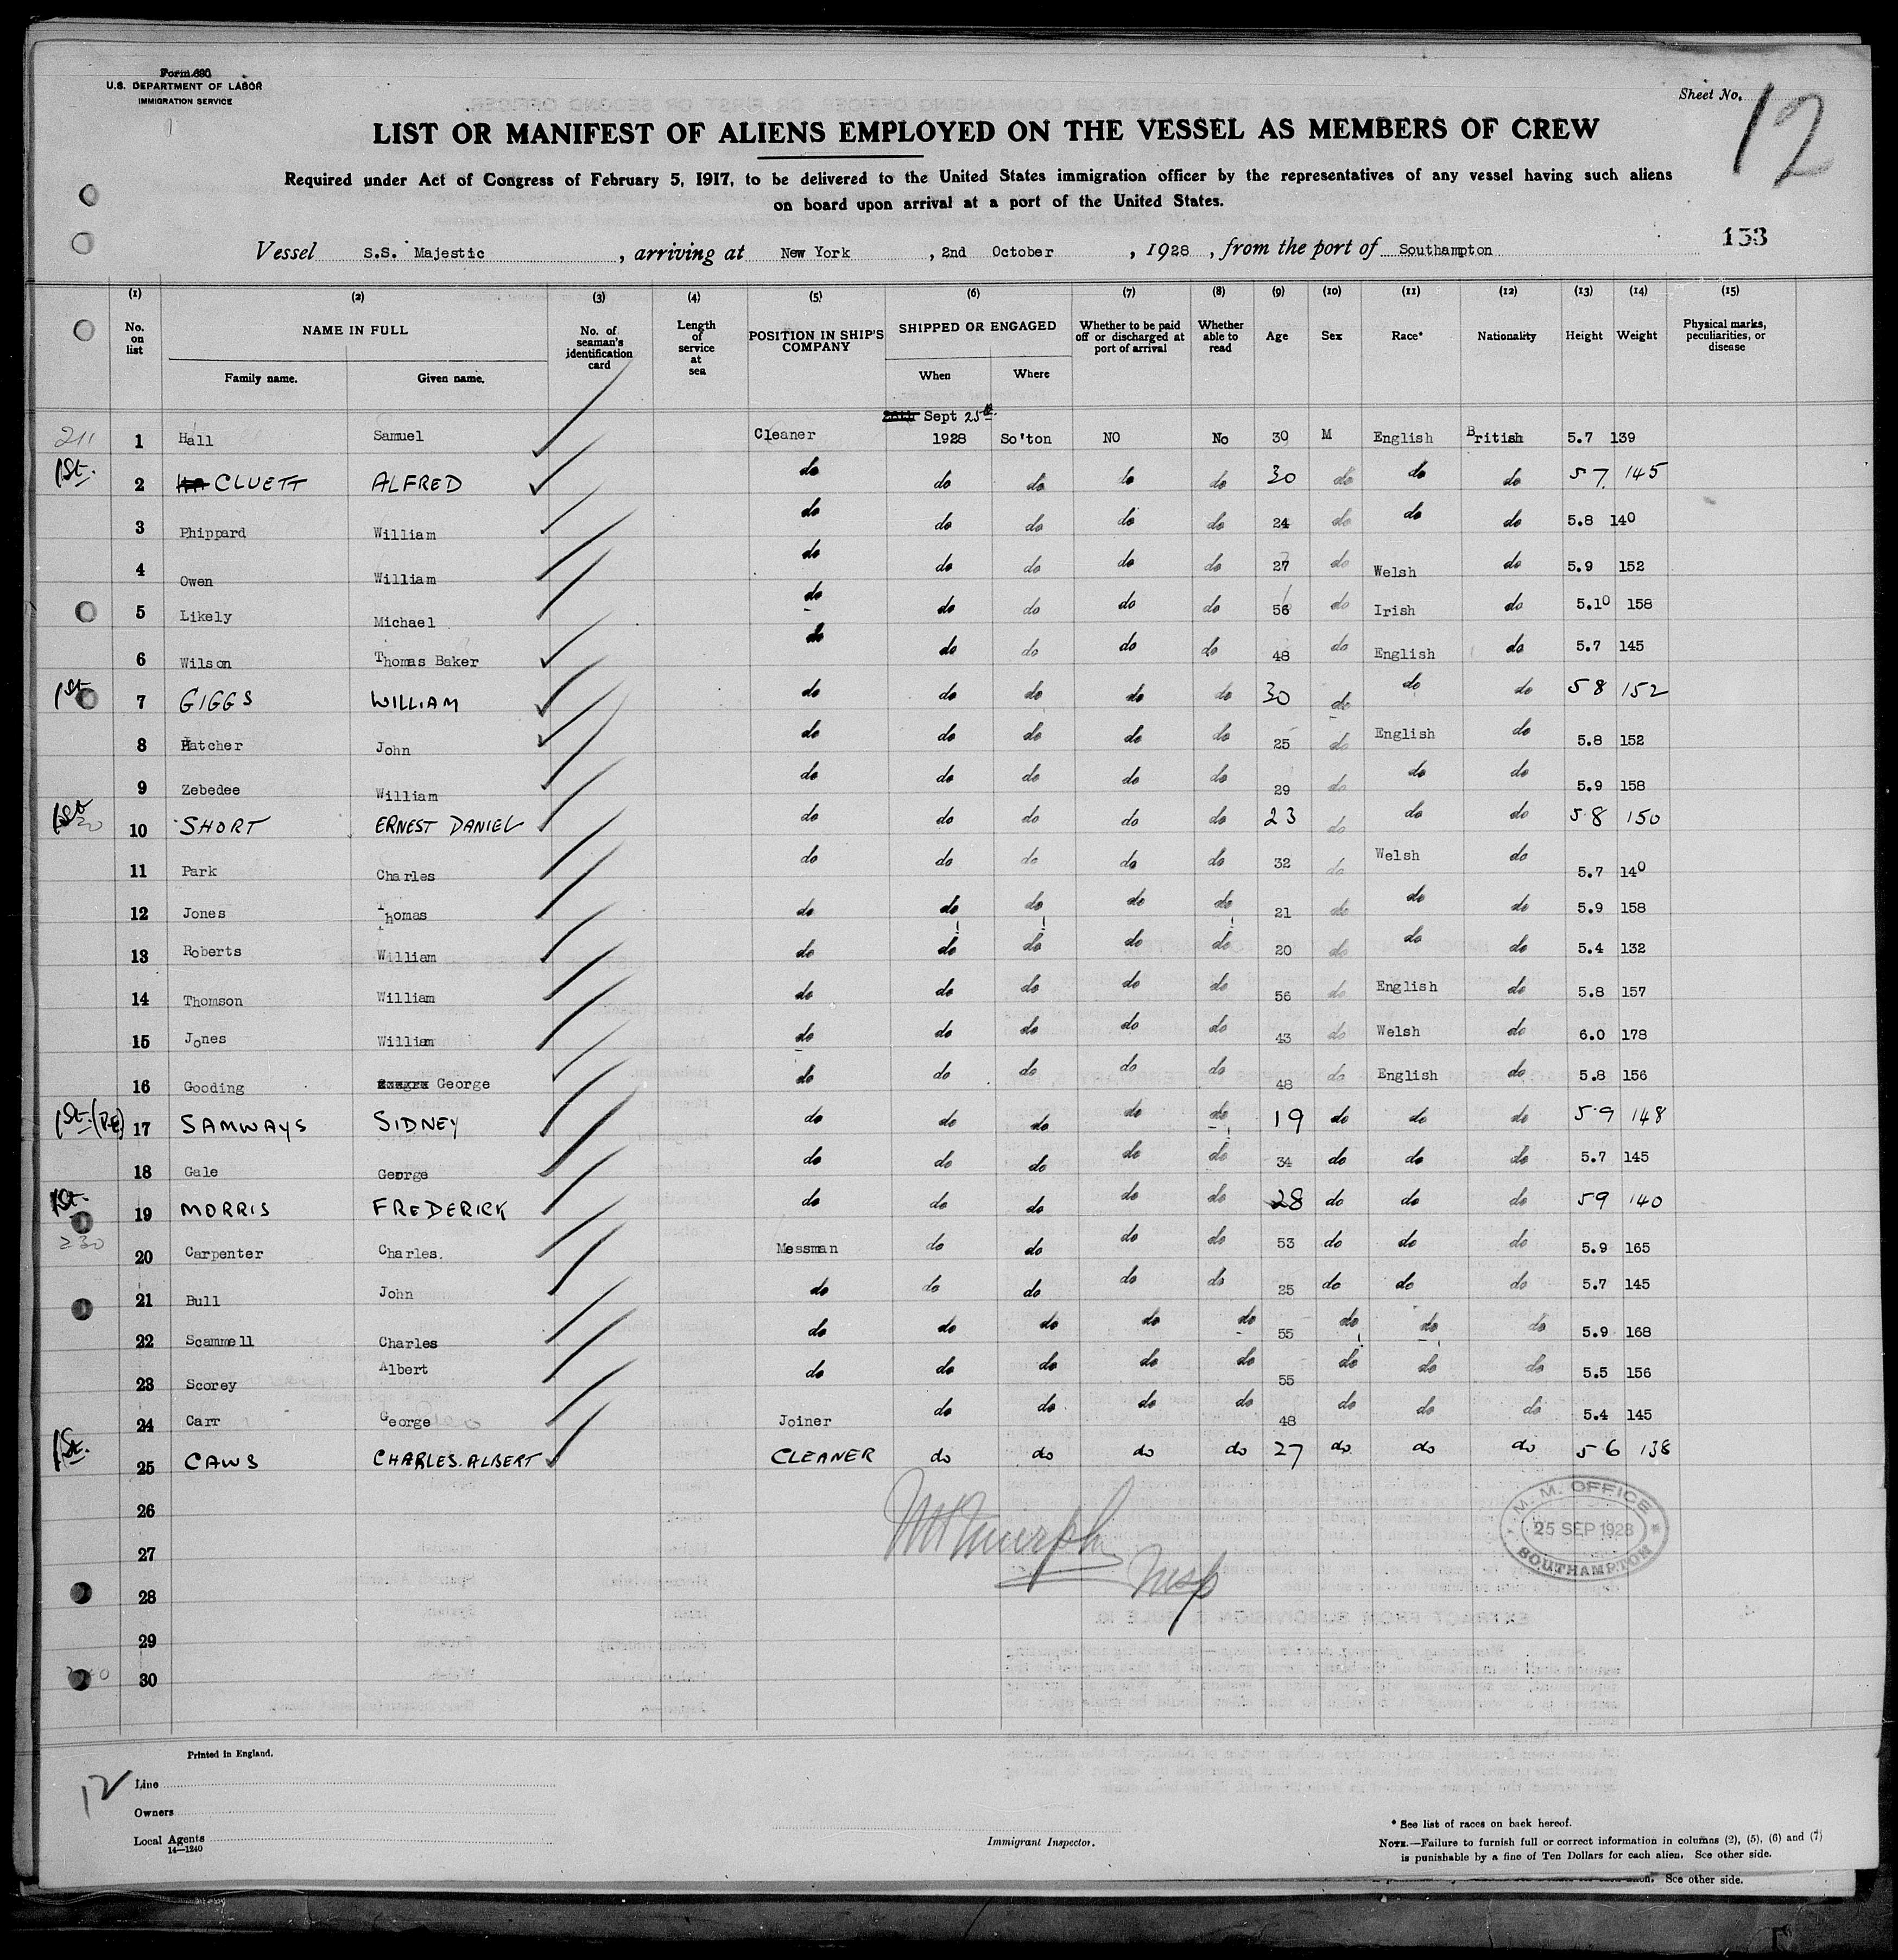 Form 680
U.S. DEPARTMENT OF LABOR
IMMIGRATION SERVICE
Sheet No. 12
LIST OR MANIFEST OF ALIENS EMPLOYED ON THE VESSEL AS MEMBERS OF CREW
Required under Act of Congress of February 5, 1917, to be delivered to the United States immigration officer by the representatives of any vessel having such aliens
on board upon arrival at a port of the United States.
133
Vessel S.S. Majestic, arriving at New York, 2nd October, 1928, from the port of Southampton
(1) (2) (3) (4) (5) (6) (7) (8) (9) (10) (11) (12) (13) (14) (15)
No. on list NAME IN FULL Family name. Given name. No. of seaman's identification card Length of service at sea POSITION IN SHIP'S COMPANY SHIPPED OR ENGAGED When Where Whether to be paid off or discharged at port of arrival Whether able to read Age Sex Race* Nationality Height Weight Physical marks, peculiarities, or disease
26th Sept 25th
211 1 Hall Samuel Cleaner 1928 So'ton NO No 30 M English British 5.7 139
1st. 2 CLUETT ALFRED do do do do do 30 do do do 5 7. 145
3 Phippard William do do do do do 24 do do do 5.8 140
4 Owen William do do do do do 27 do Welsh do 5.9 152
5 Likely Michael do do do do do 56 do Irish do 5.10 158
6 Wilson Thomas Baker do do do do do 48 do English do 5.7 145
1st 7 GIGGS WILLIAM do do do do do 30 do do do 5 8 152
8 Hatcher John do do do do do 25 do English do 5.8 152
9 Zebedee William do do do do do 29 do do do 5.9 158
1st 10 SHORT ERNEST DANIEL do do do do do 23 do do do 5.8 150
11 Park Charles do do do do do 32 do Welsh do 5.7 140
12 Jones Thomas do do do do do 21 do do do 5.9 158
13 Roberts William do do do do do 20 do do do 5.4 132
14 Thomson William do do do do do 56 do English do 5.8 157
15 Jones William do do do do do 43 do Welsh do 6.0 178
16 Gooding George do do do do do 48 do English do 5.8 156
1st. (P.E) 17 SAMWAYS SIDNEY do do do do do 19 do do do 5.9 148
18 Gale George do do do do do 34 do do do 5.7 145
1st. 19 MORRIS FREDERICK do do do do do 28 do do do 59 140
230 20 Carpenter Charles. Messman do do do do 53 do do do 5.9 165
21 Bull John do do do do do 25 do do do 5.7 145
22 Scammell Charles do do do do do 55 do do do 5.9 168
23 Scorey Albert do do do do do 55 do do do 5.5 156
24 Carr George Joiner do do do do 48 do do do 5.4 145
1st. 25 CAWS CHARLES. ALBERT CLEANER do do do do 27 do do do 5 6 138
26
27
28
29
30
M.M. OFFICE
25 SEP 1928
SOUTHAMPTON
Printed in England.
12
Line
Owners
Local Agents
14—1240
Immigrant Inspector.
* See list of races on back hereof.
NOTE.—Failure to furnish full or correct information in columns (2), (5), (6) and (7)
is punishable by a fine of Ten Dollars for each alien. See other side.
See other side.